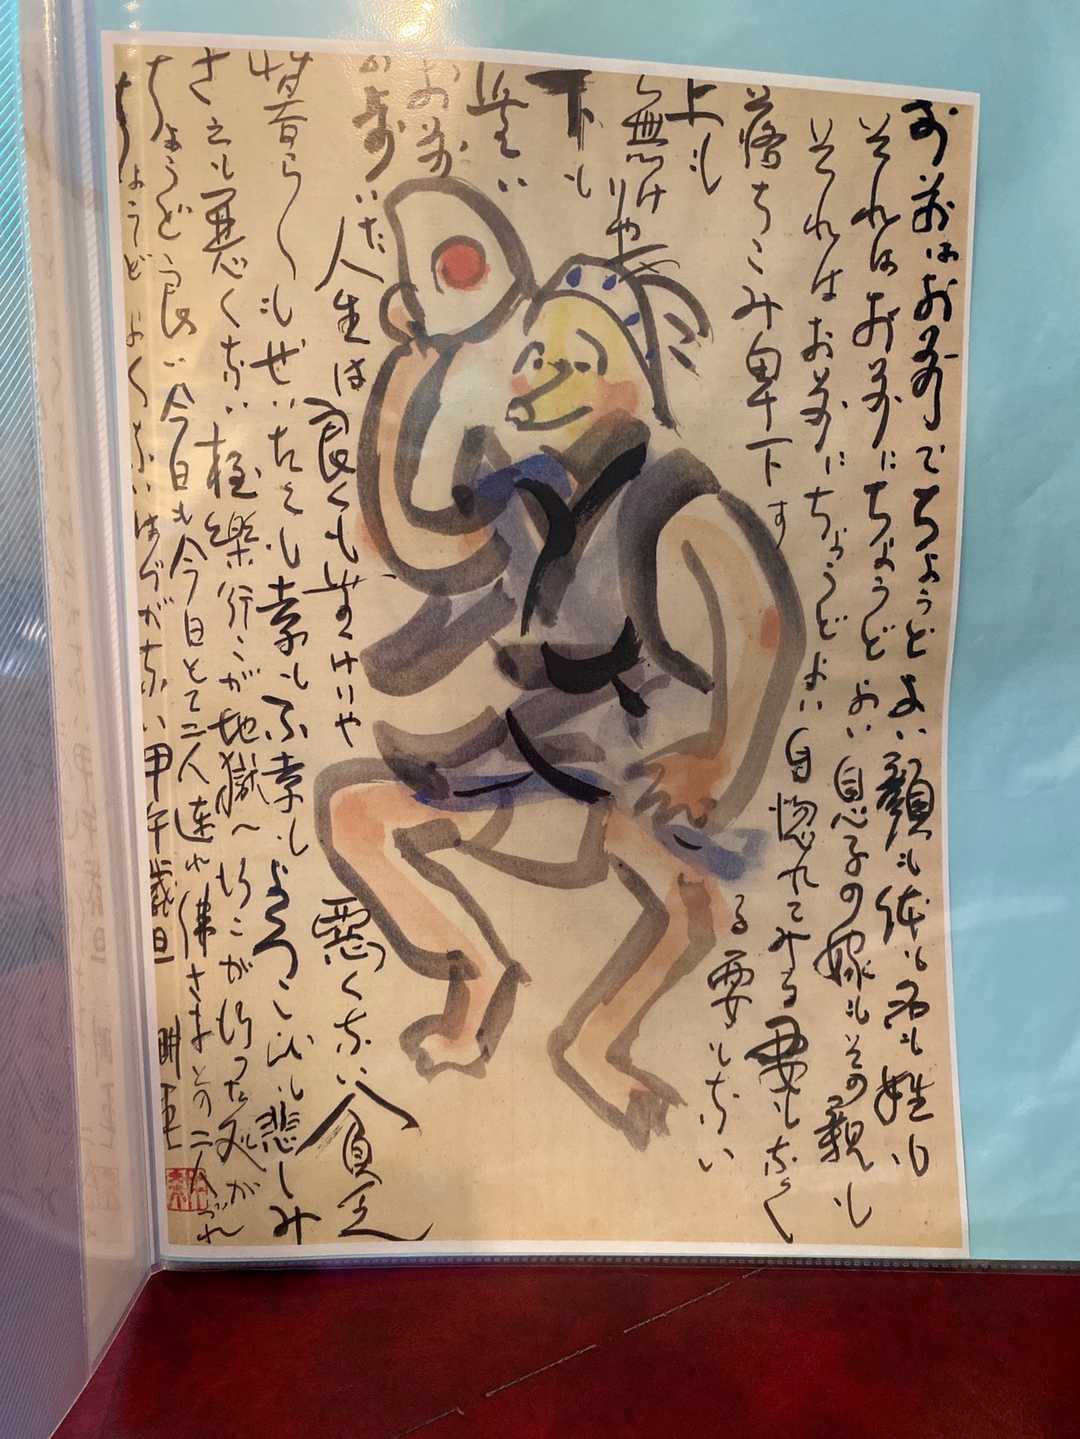 お前はお前でちょうどよい顔も体も名も姓も
それはお前にちょうどよい息子の嫁もその親も
それはお前にちょうどよい自惚れてみる要もなく
落ちこみ卑下す
る要もない
上も
無けりや
下も
無い
お前
の歩いた
人生は良くも無けりや悪くない貧乏
暮らしもぜいたくも幸も不幸もよろこびも悲しみ
さえも悪くない極楽行こが地獄へ行こが行った処が
ちょうど良い今日も今日とて二人連れ佛さまとの二人づれ
ちょうどよくないはずがない甲午歳旦